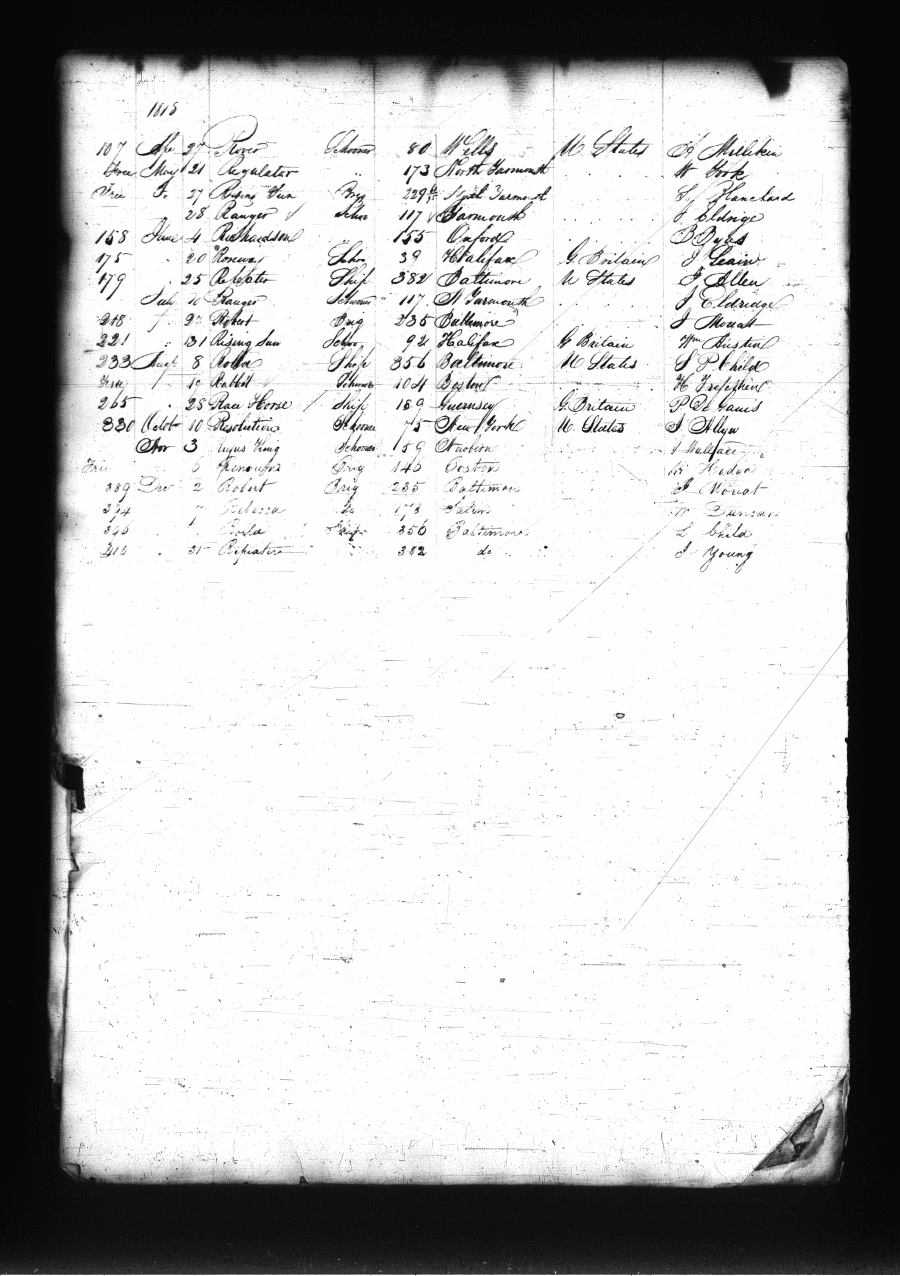 1818
107 Apr 27 Rover Schooner 80 Wells U States Millikin
Free May 21 Regulator " 173 North Yarmouth W York
Free Do 27 Rising Sun Brig 229 North Yarmouth S Blanchard
28 Ranger Schoo 117 Yarmouth J Eldrige
158 June 4 Richardson 155 Oxford B Byas
175 " 20 Schoo 39 Halifax G Britain J
179 " 25 Repeater Ship 382 Baltimore U States J Allen
July 10 Ranger Schooner 117 N Yarmouth J Eldridge
218 Robert Brig 235 Baltimore J Mouat
221 " 31 Rising Sun Schoo 92 Halifax G Britain Wm Austin
233 Augt 8 Rolla Ship 356 Baltimore U States S P Child
Free 19 Rabbit Schooner 104 Boston H Trefethen
265 " 28 Race Horse Ship 189 Guernsey G Britain P De
330 Octob 10 Resolution Schooner 75 New York U States J Allyn
Nov 3 Rufus King Schooner 159 J Wallace
Free 6 Brig 146 Boston
389 Dec 2 Robert Brig 235 Baltimore J Mouat
394 " Rebecca Do 173 Salem W Duncan
Rolla Ship 356 Baltimore L Child
410 " 31 Repeater " 382 do J Young